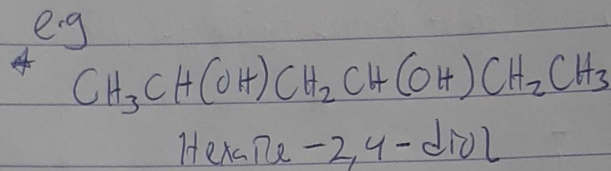 e.g
* CH₃CH(OH)CH₂CH(OH)CH₂CH₃
Hexane-2,4-diol